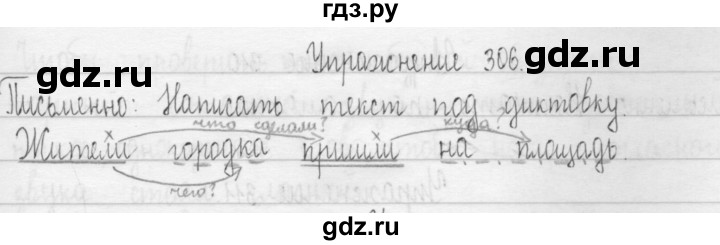 гдз.ру
Упражнение 306.
Письменно: Написать текст под диктовку.
что сделали? куда?
Жители городка пришли на площадь.
чего?
gdz.ru gdz.ru